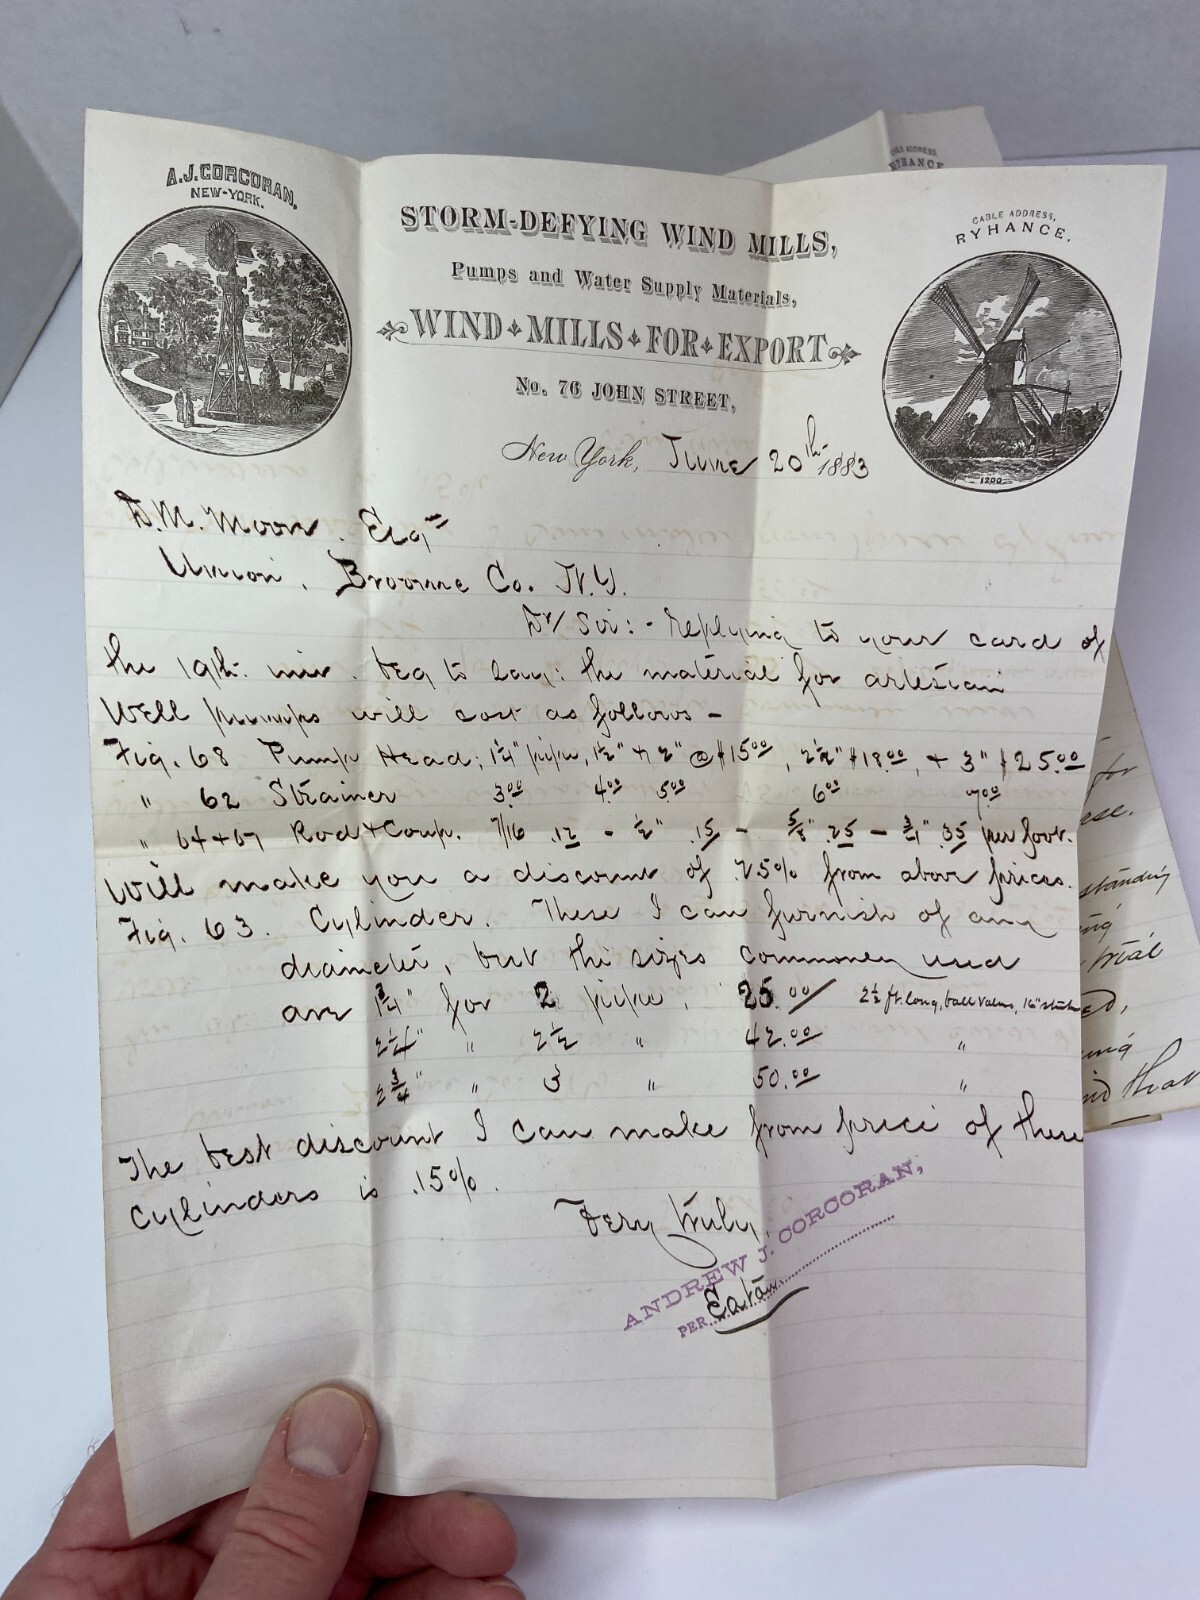 A.J. CORCORAN,
NEW-YORK.
STORM-DEFYING WIND MILLS,
Pumps and Water Supply Materials,
WIND MILLS FOR EXPORT
No. 76 JOHN STREET,
CABLE ADDRESS,
RYHANCE.
1200
New York, June 20th 1883
D.M. Moon. Esq
Union, Broome Co. N.Y.
Dr/ Sir:- Replying to your card of
the 19th. beg to say: the material for artesian
Well pumps will cost as follows -
Fig. 68 Pump Head; 1¼" pipe, 1½" & 2" @ $15.00, 2½" $18.00, + 3" $25.00
" 62 Strainer 3.00 4.00 5.00 6.00 7.00
" 64+67 Rod + Coup. 7/16 .12 - ½" .15 - 5/8" .25 - 3/4" .35 per foot.
Will make you a discount of .25% from above prices.
Fig. 63. Cylinder. These I can furnish of any
diameter, but the sizes commonly used
are 1¾" for 2 pipe, 25.00/ 2½ ft. long, ball valves, 16"
2¼" " 2½ " 42.00 "
2¾" " 3 " 50.00 "
The best discount I can make from price of these
Cylinders is .15%.
Very truly,
ANDREW J. CORCORAN,
PER Eaton
CABLE ADDRESS,
RYHANCE
for
standing
trial
that